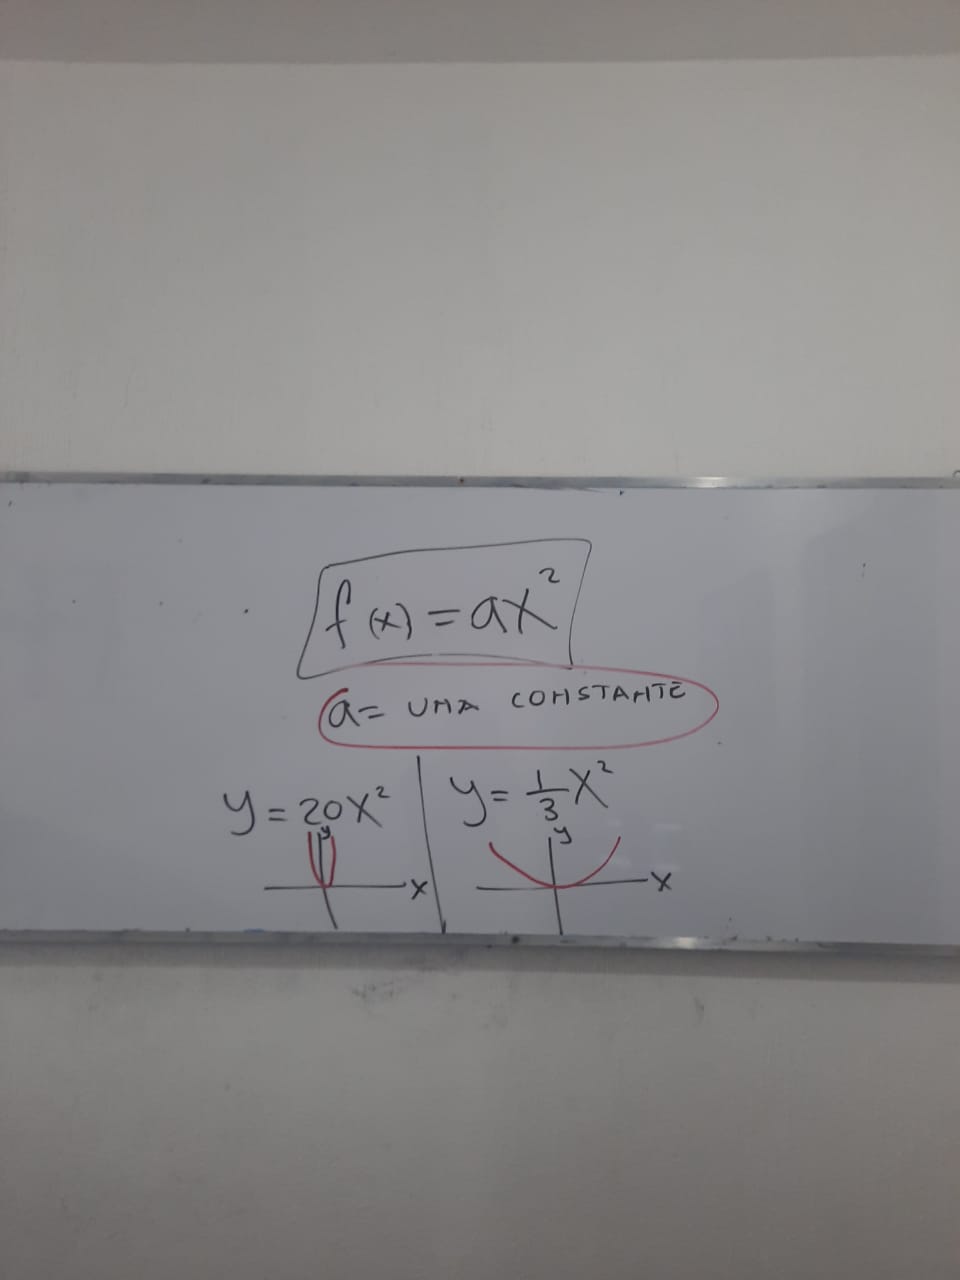 f(x) = ax²
a = UMA CONSTANTE
y = 20x²
y
x
y = 1/3 x²
y
x